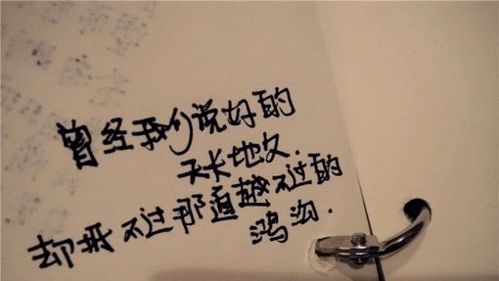 曾经我们说好的
天长地久.
却抵不过那道越不过的
鸿沟.